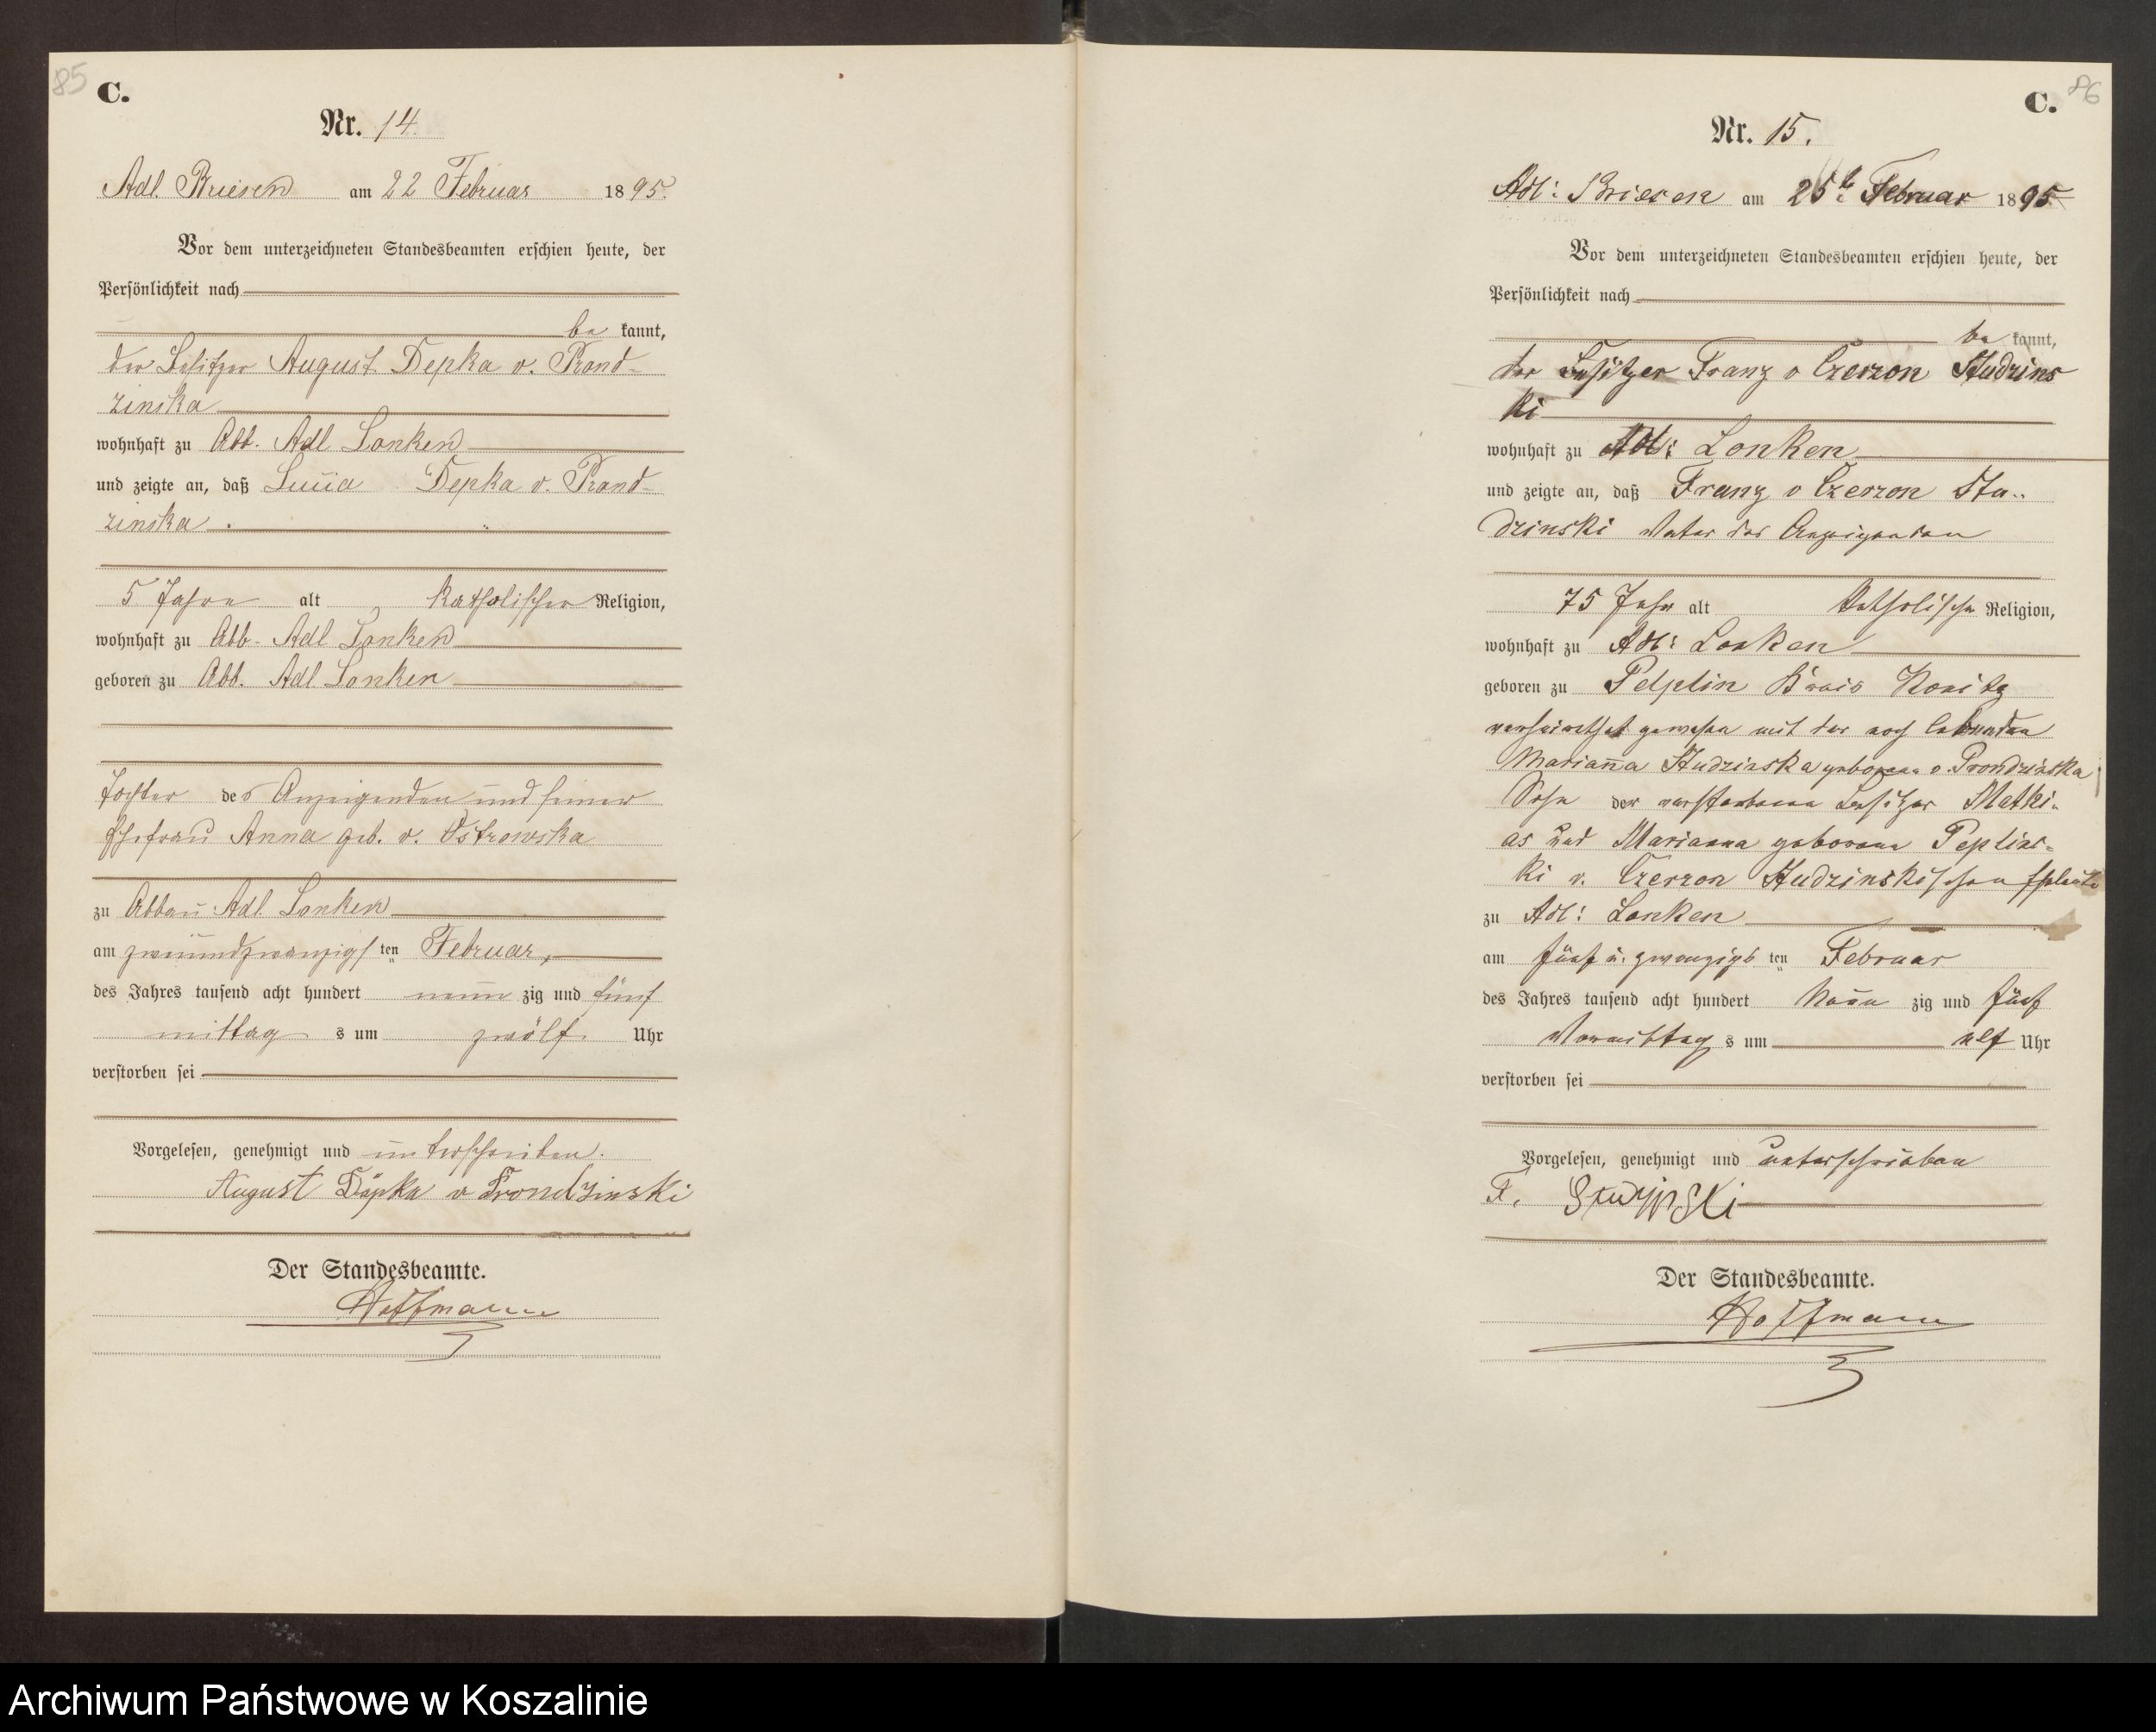 85
C.
Nr. 14.
Adl. Briesen am 22 Februar 1895.
Vor dem unterzeichneten Standesbeamten erschien heute, der
Persönlichkeit nach
be kannt,
der Besitzer August Depka v. Prond-
zinska
wohnhaft zu Abb. Adl Lonken
und zeigte an, daß Depka v. Prond-
zinska
5 Jahre alt, katholischer Religion,
wohnhaft zu Abb. Adl Lonken
geboren zu Abb. Adl. Lonken
Tochter des Anzeigenden und seiner
Ehefrau Anna geb. v. Ostrowska
zu Abbau Adl. Lonken
am zweiundzwanzigsten Februar,
des Jahres tausend acht hundert neun zig und fünf
mittag s um zwölf Uhr
verstorben sei
Vorgelesen, genehmigt und unterschrieben.
August Döpka v Prondzinski
Der Standesbeamte.
Hoffmann
86
C.
Nr. 15.
Adl: Briesen am 25t Februar 1895
Vor dem unterzeichneten Standesbeamten erschien heute, der
Persönlichkeit nach
be kannt,
der Besitzer Franz v Czerzon Studzins
ki
wohnhaft zu Adl: Lonken
und zeigte an, daß Franz v Czerzon Stu-
dzinski Vater des Anzeigenden
75 Jahr alt katholische Religion,
wohnhaft zu Adl: Lonken
geboren zu Pelplin Kreis Konitz
verheirathet gewesen mit der noch lebenden
Marianna Studzinska geborene v. Prondzinska
Sohn der verstorbene Besitzer Mathi-
as und Marianna geborene Peplins-
ki v. Czerzon Studzinskischen Eheleute
zu Adl: Lonken
am fünf u. zwanzigs ten Februar
des Jahres tausend acht hundert Neun zig und fünf
Vormittag s um elf Uhr
verstorben sei
Vorgelesen, genehmigt und unterschrieben
F.
Der Standesbeamte.
Hoffmann
Archiwum Państwowe w Koszalinie